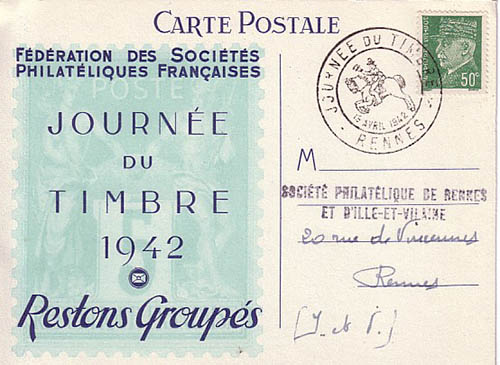 CARTE POSTALE
FÉDÉRATION DES SOCIÉTÉS
PHILATÉLIQUES FRANÇAISES
POSTES
JOURNÉE
DU
TIMBRE
1942
Restons Groupés
JOURNÉE DU TIMBRE
19 AVRIL 1942
RENNES
50c
M
SOCIÉTÉ PHILATÉLIQUE DE RENNES
ET D'ILLE-ET-VILAINE
20 rue de Vincennes
Rennes
(I. et V.)